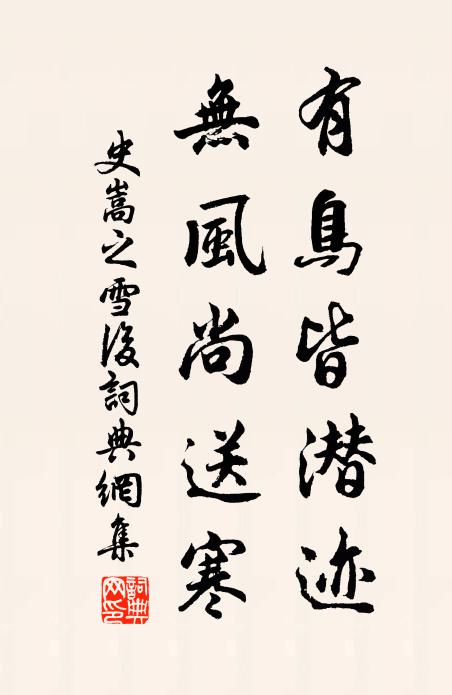 有鳥皆潜迹
無風尚送寒
史嵩之雪後詞典網集
詞典网印